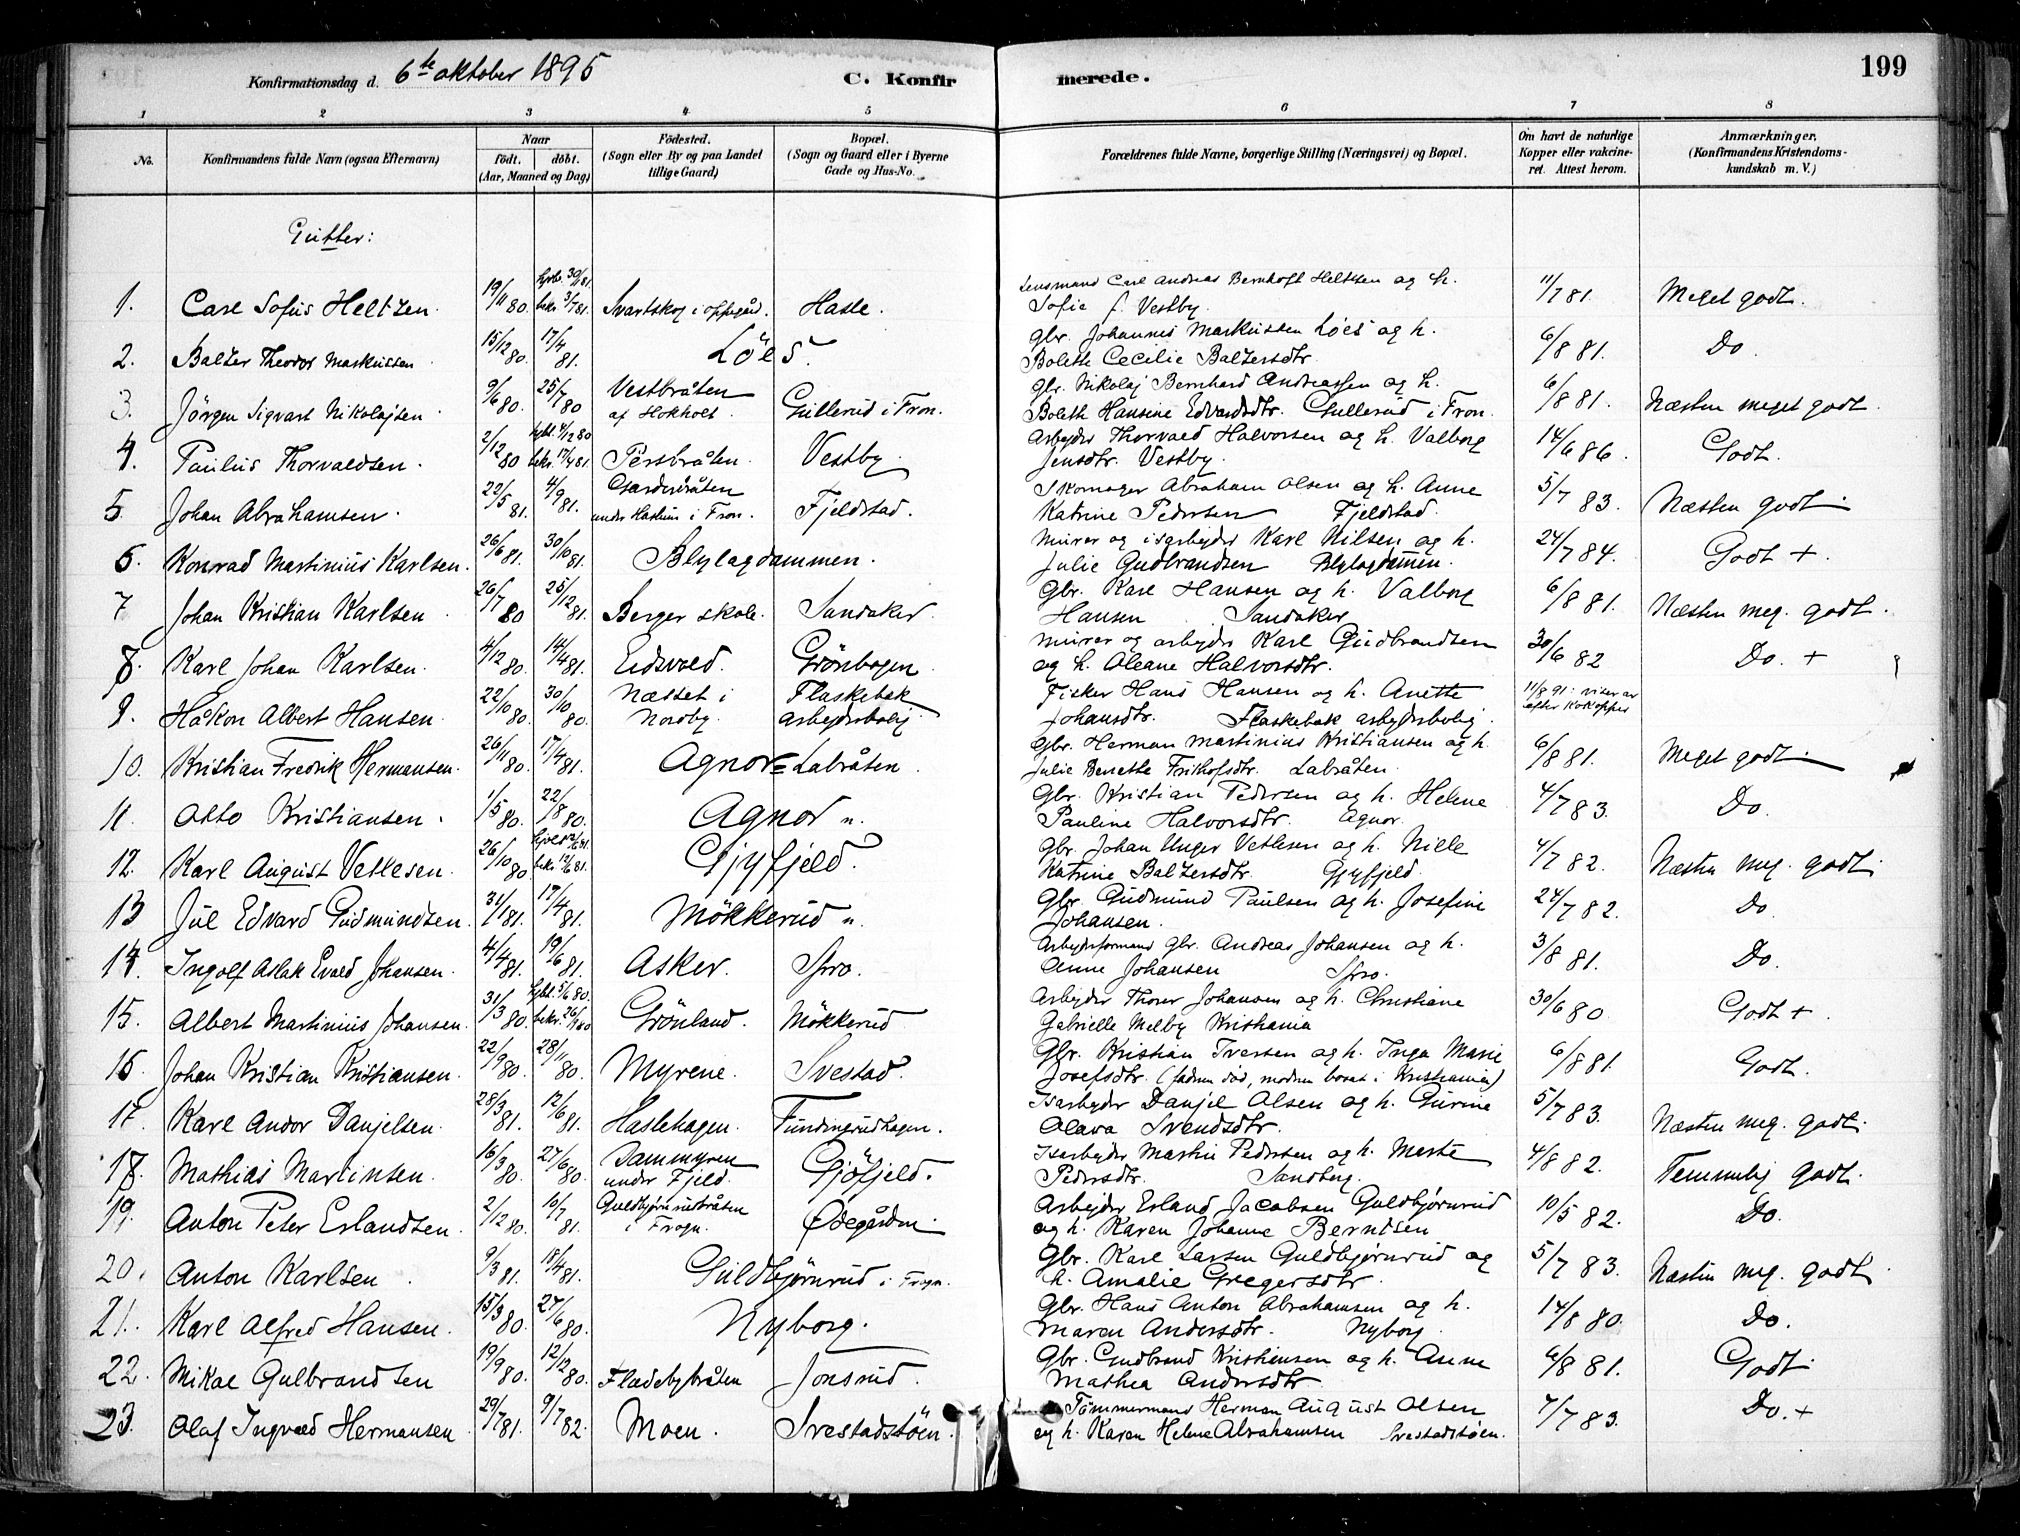 Konfirmationsdag d. 6te oktober 1895 C. Konfirmerede. 199
1 2 3 4 5 6 7 8
No. Konfirmandens fulde Navn (ogsaa Efternavn) Naar födt. döbt. (Aar, Maaned og Dag) Födested. (Sogn eller By og paa Landet tillige Gaard) Bopæl. (Sogn og Gaard eller i Byerne Gade og Hus-No. Forældrenes fulde Navne, borgerlige Stilling (Næringsvei) og Bopæl. Om havt de naturlige Kopper eller vakcineret. Attest herom. Anmærkninger. (Konfirmandens Kristendomskundskab m. V.)
Gutter:
1. Carl Sofus Heltzen. 19/11 80. 30/81. bekr. 3/7 81. Svartskog i Oppegård. Hasle. Lensmand Carl Andreas Bernhoft Heltzen og h. 11/7 81. Meget godt.
Sofie f. Vestby.
2. Balzer Theodor Markussen 15/12 80. 17/4 81. Löes. Gbr. Johannes Markussen Löes og h. 6/8 81. Do.
Boleth Cecilie Baltzersdtr.
3. Jörgen Sigvart Nikolajsen. 9/6 80. 25/7 80 Vestbråten af Hokholt. Gullerud i Fron. Gbr. Nikolaj Bernhard Andreassen og h. 6/8 81. Næsten meget godt.
Boleth Hansine Edvardsdtr. Gullerud i Fron.
4. Paulus Thorvaldsen. 2/12 80 hjbt. 4/12 80 bekr. 17/4 81. Persbråten. Vestby. Arbejder Thorvald Halvorsen og h. Valborg 14/6 86. Godt.
Jensdtr. Vestby.
5. Johan Abrahamsen. 22/5 81. 4/9 81. under Haslum i Fron. Fjeldstad. Skomager Abraham Olsen og h. Anne 5/7 83. Næsten godt.
Katrine Pedersen Fjeldstad.
6. Konrad Martinius Karlsen. 26/6 81. 30/10 81. Blylagdammen. Murer og isarbejder Karl Nilsen og h. 24/7 84. Godt +.
Julie Gudbrandsen Blylagdammen.
7 Johan Kristian Karlsen 26/7 80 25/12 81. Berger skole. Sandaker. Gbr. Karl Hansen og h. Valborg 6/8 81. Næsten meg. godt.
Hansen Sandaker
8. Karl Johan Karlsen. 4/12 80. 14/4 81. Eidsvold. Grönhagen. Murer og arbejder Karl Gudbrandsen 30/6 82 Do. +
og h. Oleane Halvorsdtr.
9. Håkon Albert Hansen. 22/10 80. 30/10 80. Næsset i Nordby. Flaskebek arbejderbolig. Fisker Hans Hansen og h. Anette 11/8 91: viser ar efter kokopper
Johansdtr. Flaskebek arbejderbolig.
10. Kristian Fredrik Hermansen. 26/11 80. 17/4 81. Agnor = Labråten. Gbr. Herman Martinius Kristiansen og h. 6/8 81. Meget godt.
Julie Benette Frithofsdtr. Labråten.
11. Otto Kristiansen. 1/5 80. 22/8 80. Agnor ". Gbr. Kristian Pedersen og h. Helene 4/7 83. Do.
Pauline Halvorsdtr. Agnor.
12. Karl August Vetlesen. 26/10 80. bekr. 12/6 81. Gjyfjeld. Gbr. Johan Unger Vetlesen og h. Nille 4/7 82. Næsten meg. godt.
Katrine Baltzersdtr. Gjyfjeld.
13 Jul Edvard Gudmundsen. 31/1 81. 17/4 81. Mökkerud ". Gbr. Gudmund Paulsen og h. Josefine 24/7 82. Do.
Johansen.
14. Ingolf Aslak Evald Johansen. 4/4 81. 19/6 81. Asker. Spro. Arbejdsformand Gbr. Andreas Johansen og h. 3/8 81. Do.
Anne Johansen Spro.
15. Albert Martinius Johansen. 31/3 80. hjbt. 5/6 80. bekr. Grönland. Mökkerud Arbejder Thorer Johansen og h. Christiane 30/6 80 Godt +.
Gabrielle Melby Kristiania
16. Johan Kristian Kristiansen. 22/9 80. 28/11 80. Myrene. Svestad. Gbr. Kristian Iversen og h. Inga Marie 6/8 81. Godt.
Josefsdtr. (faderen död, moderen bosat i Kristiania)
17. Karl Andor Danjelsen. 28/3 81. 12/6 81. Haslehagen. Fundingrudhagen. Isarbejder Danjel Olsen og h. Gurine 5/7 83. Næsten meg. godt.
Olava Svendsdtr.
18. Mathias Martinsen. 16/3 80. 27/6 80. Dammyren under Fjeld. Gjöfjeld. Isarbejder Martin Pedersen og h. Merte 4/8 82. Temmelig godt.
Pedersdtr. Sandberg.
19. Anton Peter Erlandsen. 2/12 80. 10/7 81. Guldbjørnrudbråten i Frogn. Ødegården. Arbejder Erland Jacobsen Guldbjørnrud 10/5 82. Do.
og h. Karen Johanne Berntsen
20. Anton Karlsen. 9/3 81. 18/4 81. Guldbjørnrud i Frogn. Gbr. Karl Larsen Guldbjørnrud og 5/7 83. Næsten meg. godt.
h. Amalie Gregersdtr.
21. Karl Alfred Hansen. 15/3 80. 27/6 80. Nyborg. Gbr. Hans Anton Abrahamsen og h. 14/8 80. Do.
Maren Andersdtr. Nyborg.
22. Mikal Gulbrandsen 19/9 80. 12/12 80. Fladebybråten Jonsrud. Gbr. Gudbrand Kristiansen og h. Anne 6/8 81. Godt.
Mathea Andersdtr.
23. Olaf Ingvald Hermansen 29/7 81. 9/7 82. Moen. Svestadstöen. Tömmermand Herman August Olsen 7/7 83. Do. +
og h. Karen Helene Abrahamsen Svestadstöen.